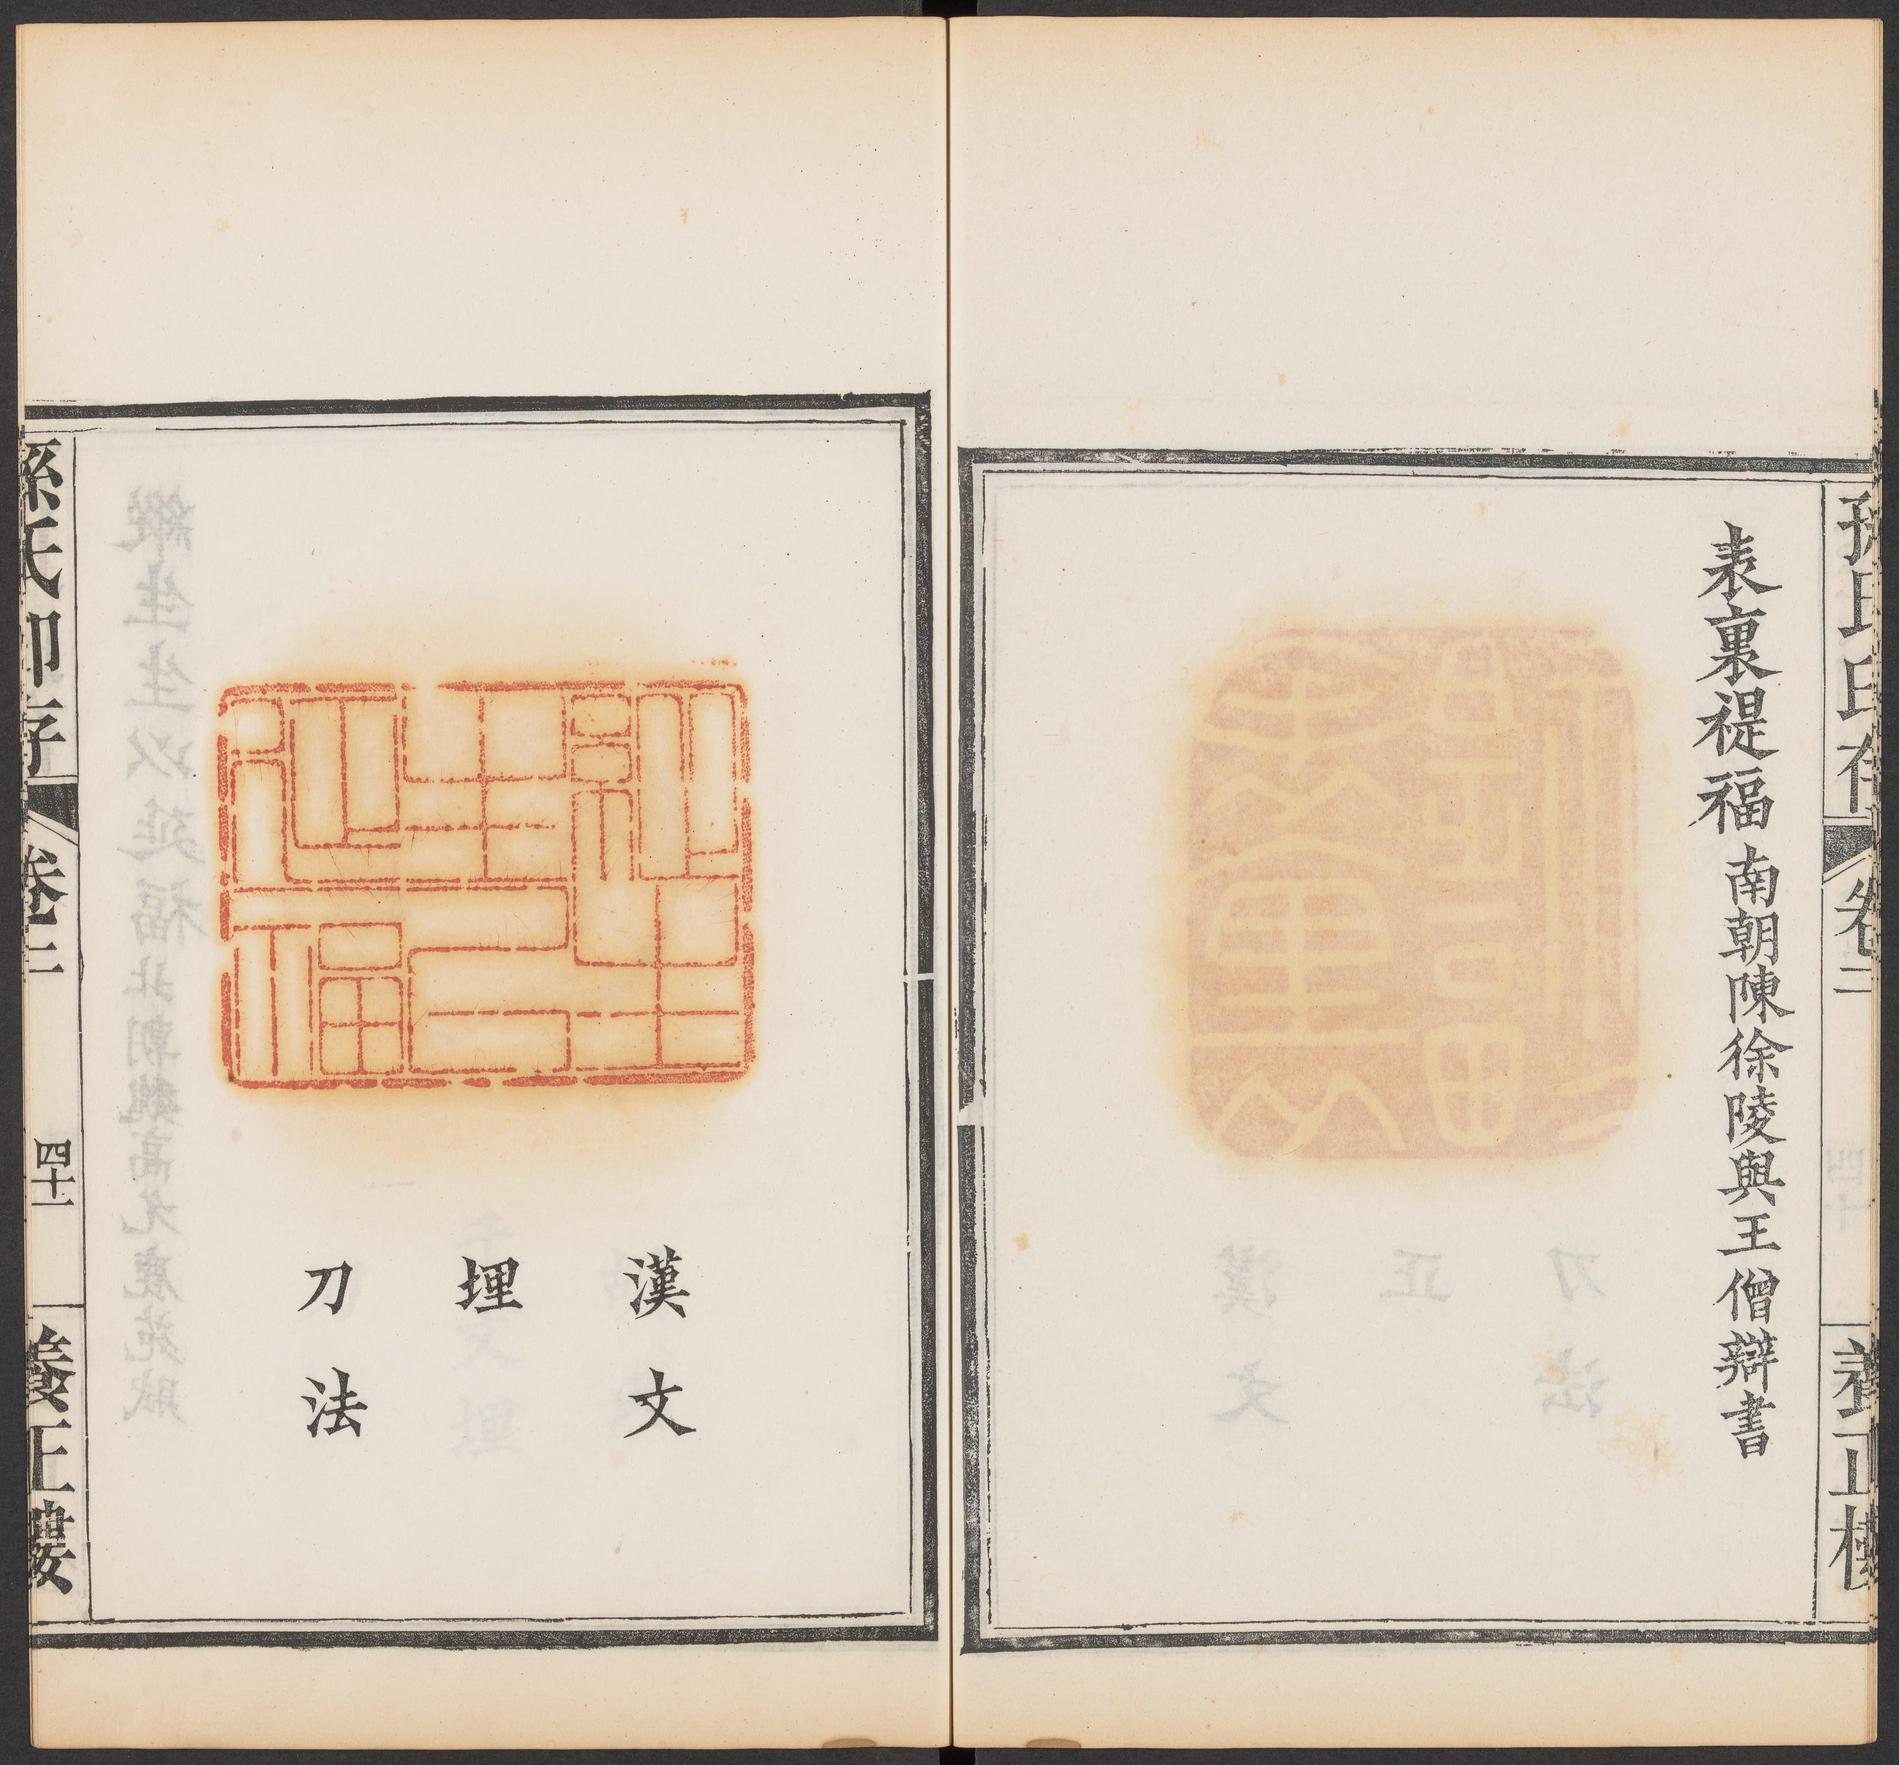 孫氏印存
卷二
養正樓
表裏禔福 南朝陳徐陵與王僧辯書
漢文
埋
刀法
孫氏印存
卷二
四十一
養正樓